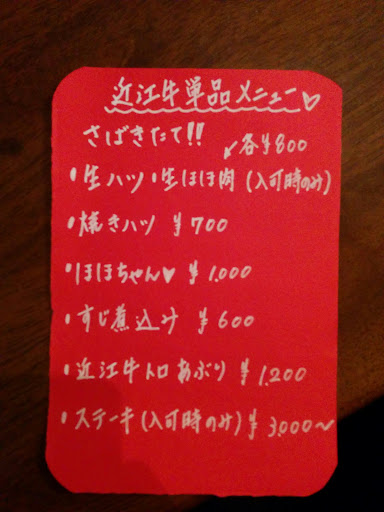 近江牛単品メニュー♡
さばきたて!!
↙各¥800
・生ハツ ・生ほほ肉 (入可時のみ)
・焼きハツ ¥700
・ほほちゃん♥ ¥1,000
・すじ煮込み ¥600
・近江牛トロあぶり ¥1,200
・ステーキ(入可時のみ)¥3,000~